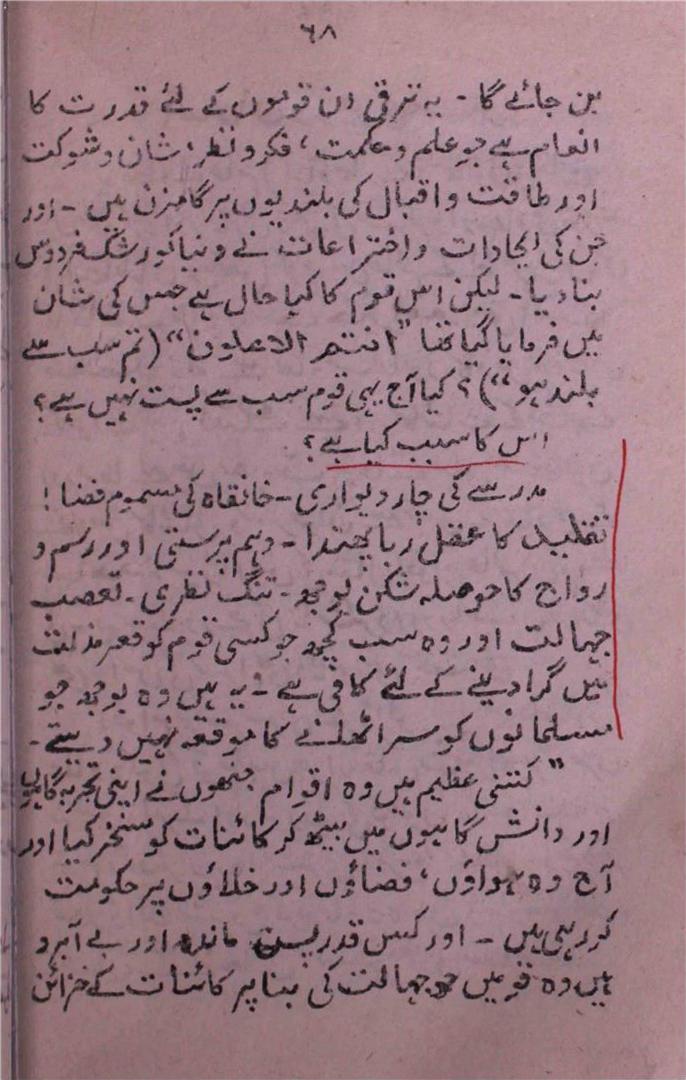 ۶۸
بن جائے گا - یہ ترقی ان قوموں کے لئے قدرت کا
انعام ہے جو علم و حکمت، فکر و نظر، شان و شوکت
اور طاقت و اقبال کی بلندیوں پر گامزن ہیں - اور
جن کی ایجادات و اختراعات نے دنیا کو رشک فردوس
بنا دیا - لیکن اس قوم کا کیا حال ہے جس کی شان
میں فرمایا گیا تھا "انتم الاعلون" (تم سب سے
بلند ہو")؟ کیا آج یہی قوم سب سے پست نہیں ہے؟
اس کا سبب کیا ہے؟
مدرسے کی چار دیواری - خانقاہ کی مسموم فضا!
تقلید کا عقل ربا پھندا - وہم پرستی اور رسم و
رواج کا حوصلہ شکن بوجھ - تنگ نظری - تعصب
جہالت اور وہ سب کچھ جو کسی قوم کو قعر مذلت
میں گرا دینے کے لئے کافی ہے - یہ ہیں وہ بوجھ جو
مسلمانوں کو سر اٹھانے کا موقعہ نہیں دیتے -
"کتنی عظیم ہیں وہ اقوام جنھوں نے اپنی تجربہ گاہوں
اور دانش گاہوں میں بیٹھ کر کائنات کو مسخر کیا اور
آج وہ ہواؤں، فضاؤں اور خلاؤں پر حکومت
کر رہی ہیں - اور کس قدر پست ماندہ اور بے آبرو
ہیں وہ قومیں جو جہالت کی بنا پر کائنات کے خزائن